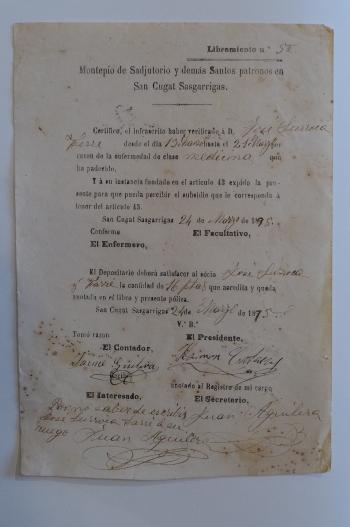 Libramiento n.º 52
Montepío de Sadjutorio y demás Santos patronos en
San Cugat Sasgarrigas.
Certifico, el infrascrito haber verificado á D. José
desde el día 15 hasta el 21
razon de la enfermedad de clase medicina que
ha padecido.
Y á su instancia fundada en el artículo 43 expido la pre-
sente para que pueda percibir el subsidio que le corresponde á
tenor del artículo 45.
San Cugat Sasgarrigas 24 de Marzo de 1895
Conforme El Facultativo,
El Enfermero,
El Depositario deberá satisfacer al sócio José
y la cantidad de 16 ptas que acredita y queda
anotada en el libro y presente póliza.
San Cugat Sasgarrigas 24 de Marzo de 1875
V.º B.º
Tomó razon El Presidente,
El Contador, Ramon
Jaime
anotado al Registro de mi cargo
El Interesado, El Secretario,
Por no saber de escribir Juan Aguilera
José á su
ruego Juan Aguilera